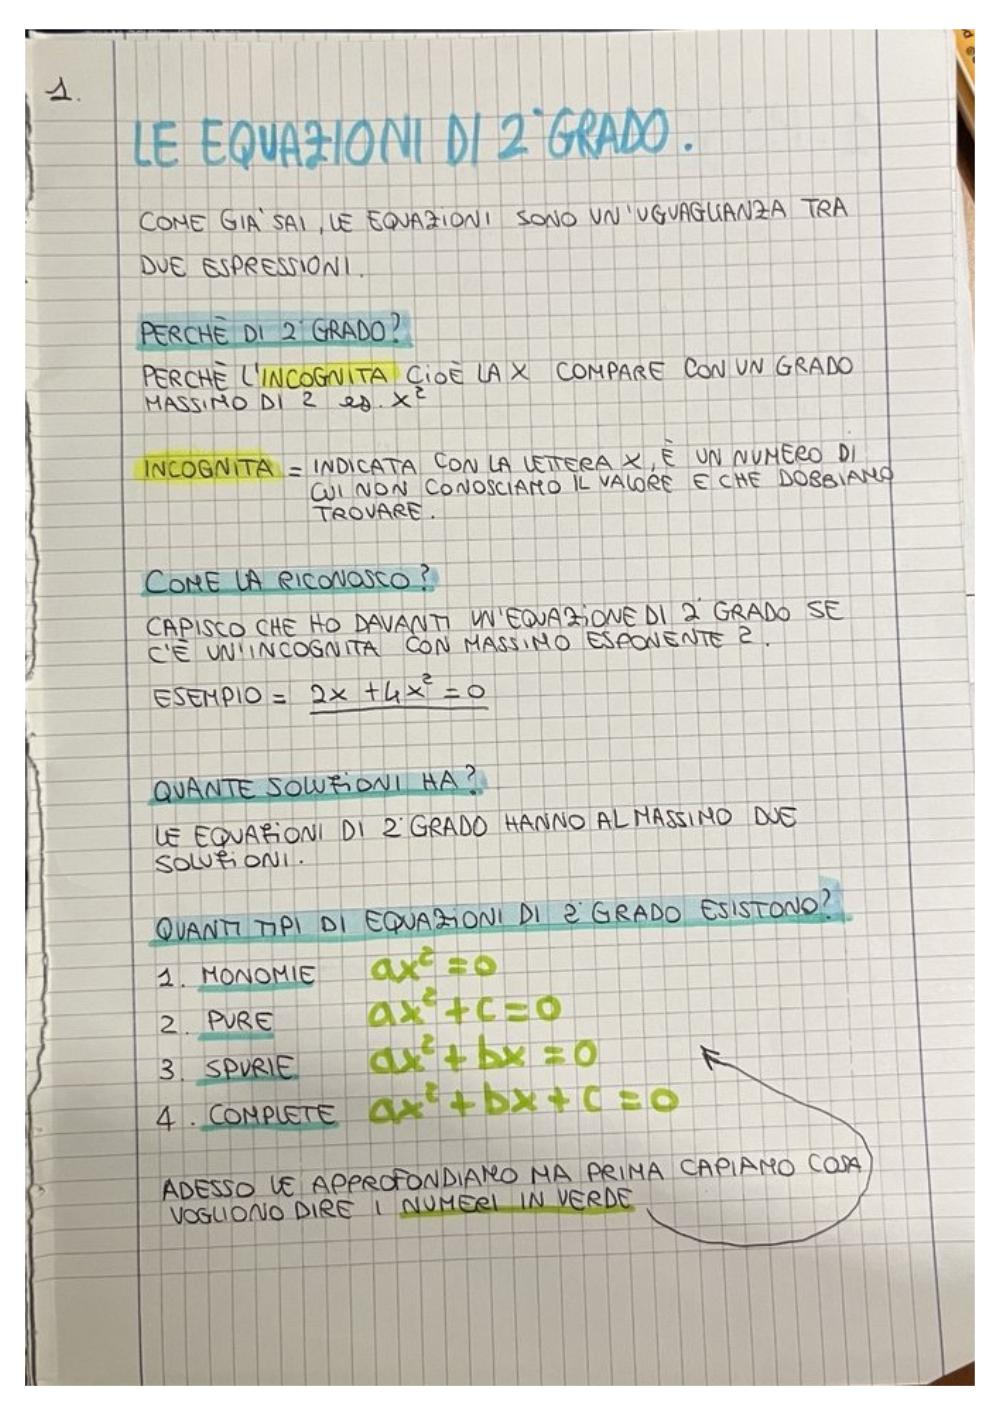 1.
LE EQUAZIONI DI 2° GRADO.
COME GIA' SAI, LE EQUAZIONI SONO UN'UGUAGLIANZA TRA
DUE ESPRESSIONI.
PERCHÈ DI 2° GRADO?
PERCHÈ L'INCOGNITA CIOÈ LA X COMPARE CON UN GRADO
MASSIMO DI 2 es. x²
INCOGNITA = INDICATA CON LA LETTERA X, È UN NUMERO DI
CUI NON CONOSCIAMO IL VALORE E CHE DOBBIAMO
TROVARE.
COME LA RICONOSCO?
CAPISCO CHE HO DAVANTI UN'EQUAZIONE DI 2° GRADO SE
C'È UN'INCOGNITA CON MASSIMO ESPONENTE 2.
ESEMPIO = 2x + 4x² = 0
QUANTE SOLUZIONI HA?
LE EQUAZIONI DI 2° GRADO HANNO AL MASSIMO DUE
SOLUZIONI.
QUANTI TIPI DI EQUAZIONI DI 2° GRADO ESISTONO?
1. MONOMIE ax² = 0
2. PURE ax² + c = 0
3. SPURIE ax² + bx = 0
4. COMPLETE ax² + bx + c = 0
ADESSO LE APPROFONDIAMO MA PRIMA CAPIAMO COSA
VOGLIONO DIRE I NUMERI IN VERDE